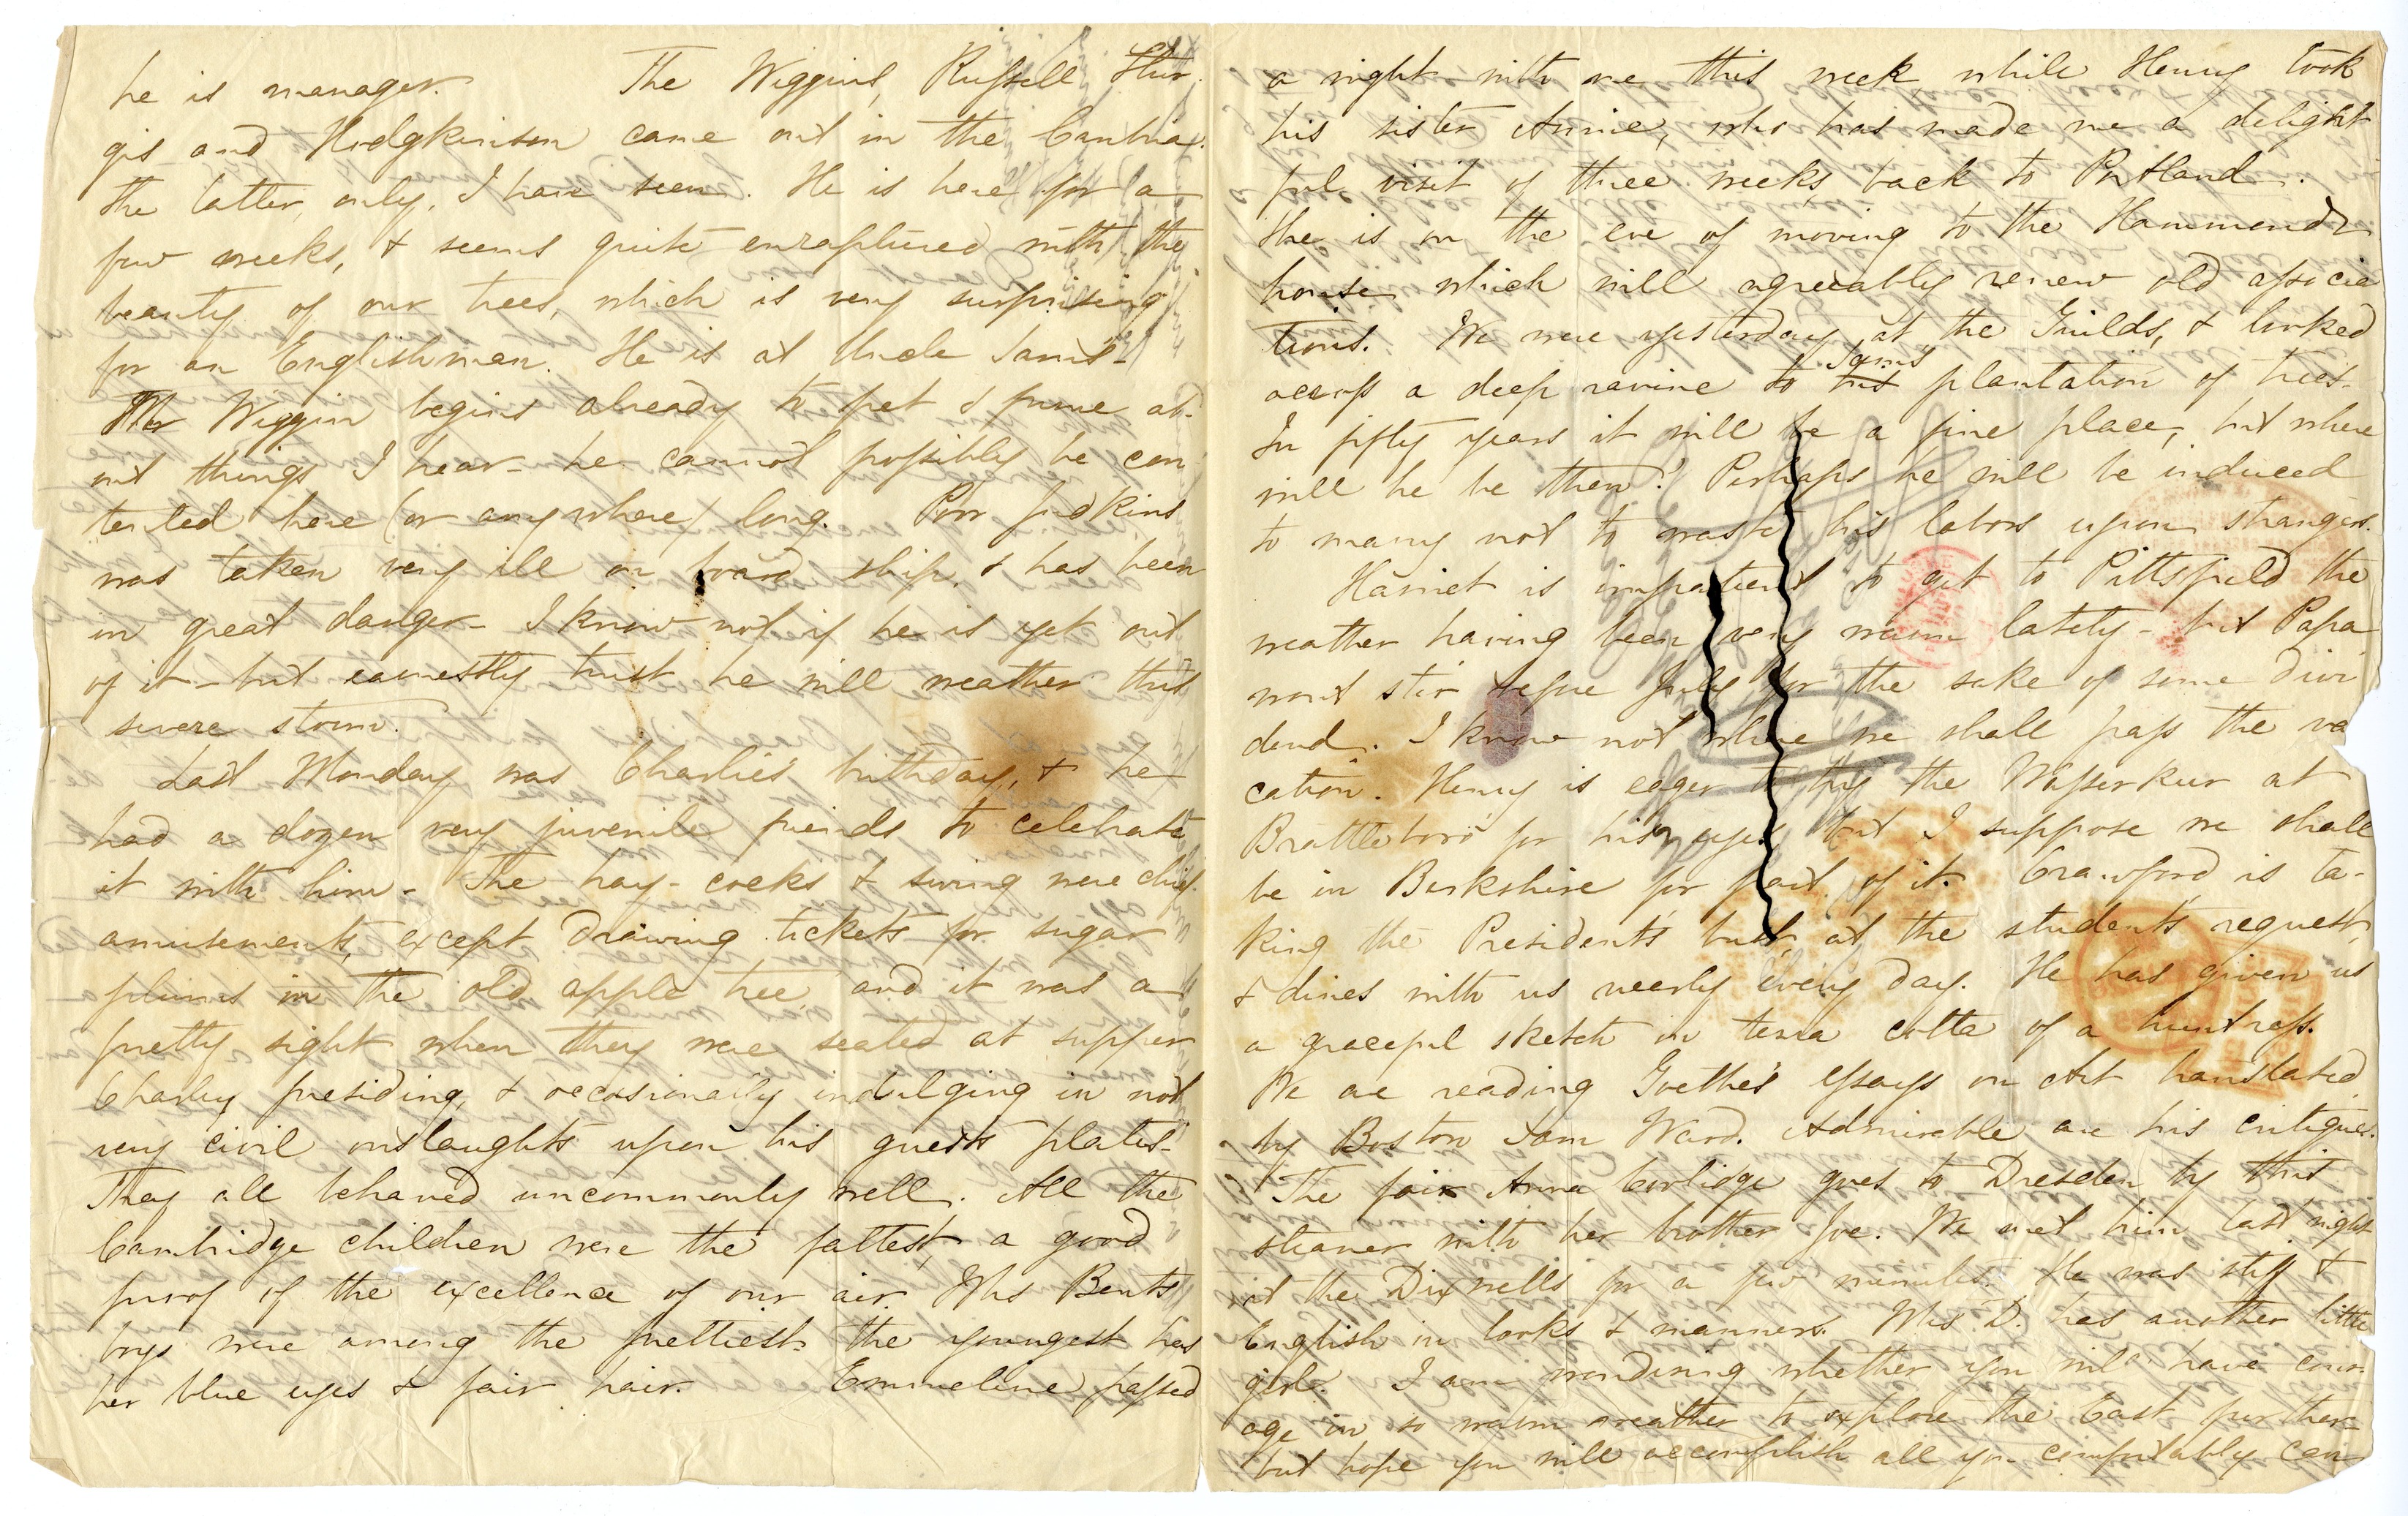 he is manager. The Wiggins, Russell Stur
gis and Hodgkinson came out in the Cambria.
the latter, only, I have seen. He is here for a
few weeks, & seems quite enraptured with the
beauty of our trees, which is very surprising
for an Englishman. He is at Uncle Sam's-
Mr Wiggin begins already to fret & fume ab-
out things I hear- he cannot possibly be con-
tented here (or anywhere) long. Poor Judkins
was taken very ill on board ship, & has been
in great danger- I know not if he is yet out
of it- but earnestly trust he will weather this
severe storm.
Last Monday was Charlie's birthday, & he
had a dozen very juvenile friends to celebrate
it with him- The hay-cocks & swing were chief
amusements, except drawing tickets for sugar
plums in the old apple tree, and it was a
pretty sight when they were seated at supper
Charley presiding, & occasionally indulging in not
very civil onslaughts upon his guests plates-
They all behaved uncommonly well. All the
Cambridge children were the fattest, a good
proof of the excellence of our air. Mrs Bents
boys were among the prettiest- the youngest has
her blue eyes & fair hair. Emmeline passed
a night with me this week while Henry took
his sister Annie, who has made me a delight
ful visit of three weeks, back to Portland.
She is on the eve of moving to the Hammond's
house which will agreeably renew old associa
tions. We were yesterday at the Guilds, & looked
across a deep ravine to his Sam's plantation of trees-
In fifty years it will be a fine place, but where
will he be then? Perhaps he will be induced
to marry not to waste his labors upon strangers.
Harriet is impatient to get to Pittsfield the
weather having been very warm lately- but Papa
won't stir before July for the sake of some divi
dend. I know not where we shall pass the va
cation. Henry is eager to try the Wasserkur at
Brattleboro' for his eyes but I suppose we shall
be in Berkshire for part of it. Crawford is ta-
king the President's bust at the students' request,
& dines with us nearly every day. He has given us
a graceful sketch in terra cotta of a huntress.
We are reading Goethe's Essays on Art translated
by Boston Sam Ward. Admirable are his critiques.
The fair Anna Coolidge goes to Dresden by this
steamer with her brother Joe. We met him last night
at the Dixwells for a few minutes. He was stiff &
English in looks & manners. Mrs. D. has another little
girl. I am wondering whether you will have cour-
age in so warm weather to explore the East further-
but hope you will accomplish all you comfortably can